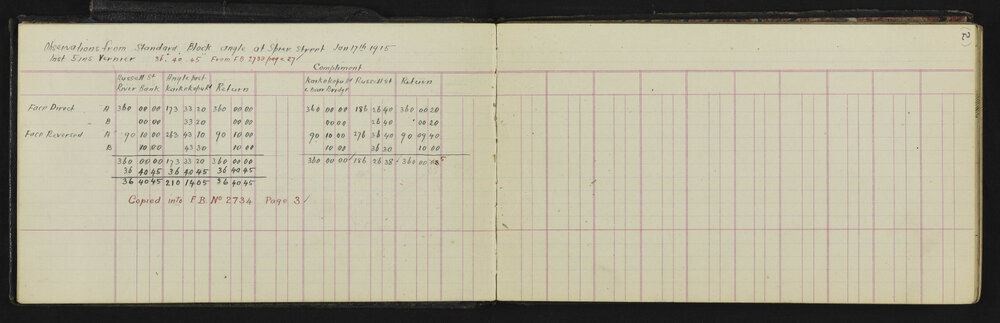 2)
Observations from Standard Block angle at Spur Street Jan 17th 1915
Inst 5ins Vernier 36° 40' 45" From F.B. 2733 page 27/
Compliment
Russell St Angle post Karkokopu Rd Russell St Return
River Bank Karkokopu Rd Return
Face Direct A 360 00 00 173 33 20 360 00 00 360 00 00 186 26 40 360 00 20
B 00 00 33 20 00 00 00 00 26 40 00 20
Face Reversed A 90 10 00 263 43 10 90 10 00 90 10 00 276 36 40 90 09 40
B 10 00 43 30 10 00 10 00 36 30 10 00
360 00 00 173 33 20 360 00 00 360 00 00 186 26 38 360 00
36 40 45 36 40 45 36 40 45
36 40 45 210 14 05 36 40 45
Copied into F.B. No 2734 Page 3/